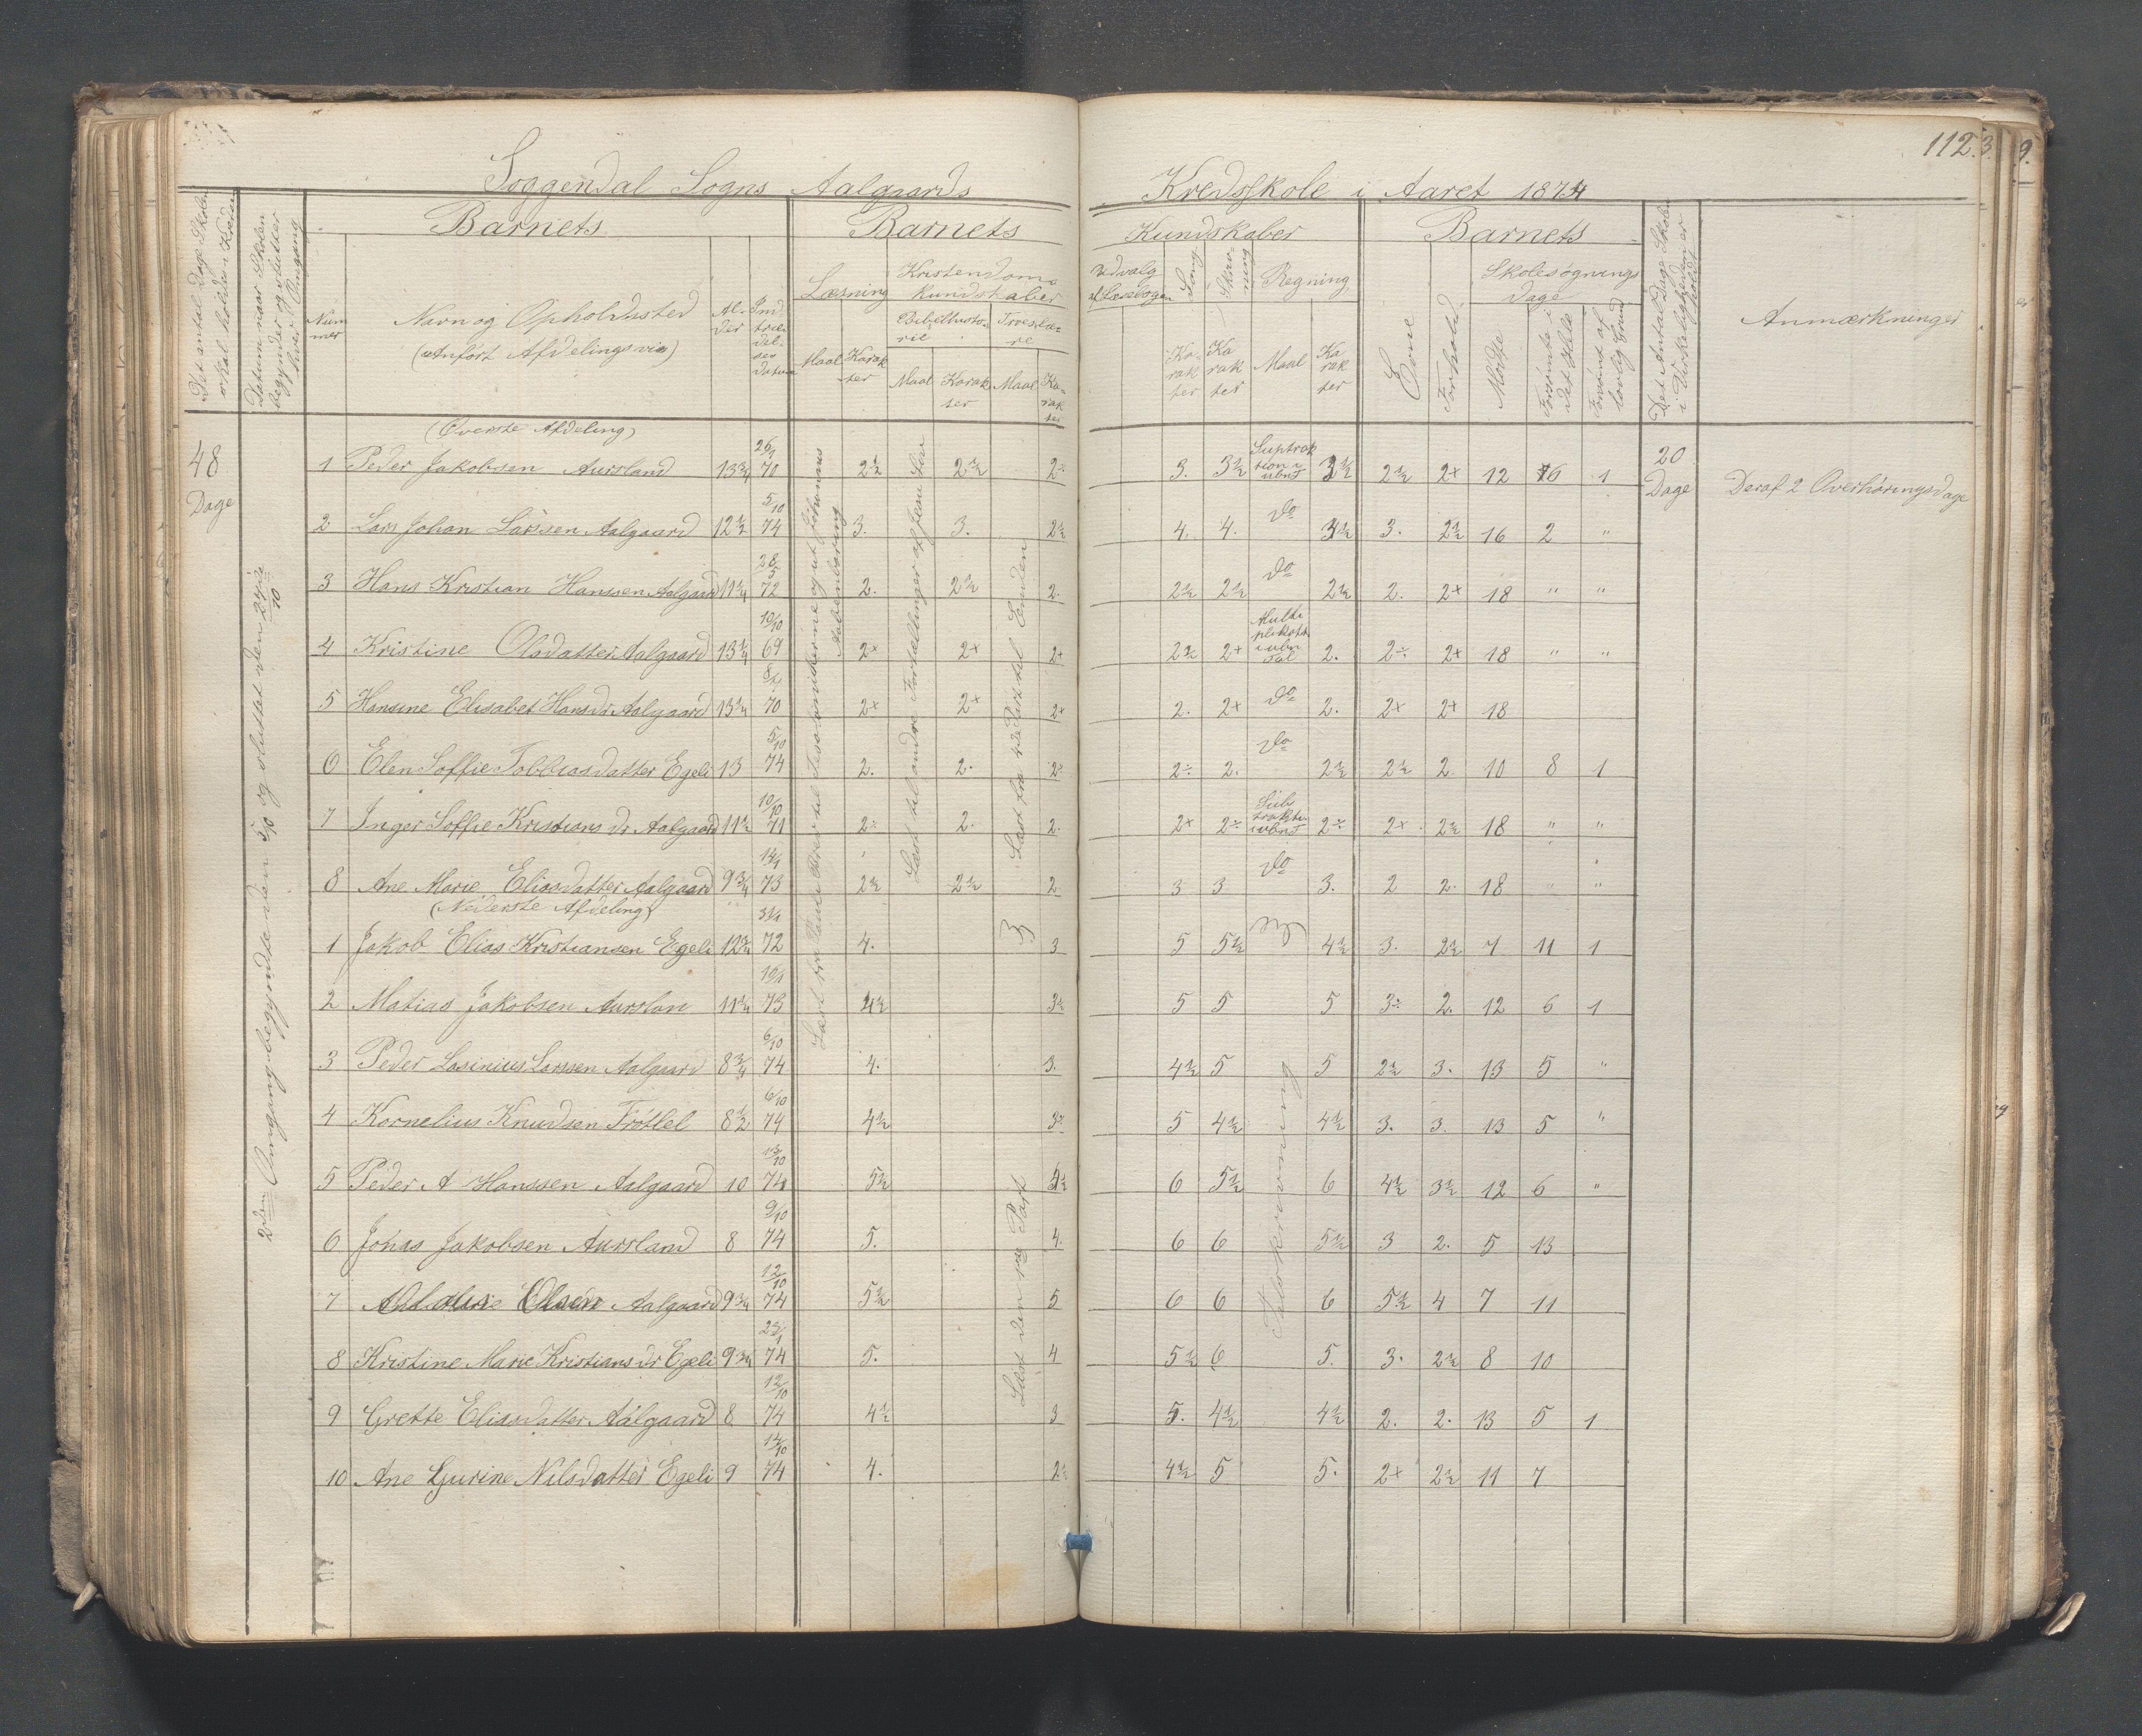 112.
Soggendal Sogns Aalgaards Kredsskole i Aaret 1874
Det antal Dage Skolen skal holdes i Kredsen
Datum naar Skolen begynder og slutter hver Omgang
Barnets
Num mer
Navn og Opholdsted
(Anført Afdelingsvis)
Al-der
Ind træ-del-ses datum
Barnets
Læsning
Maal
Karak ter
Kristendoms kundskaber
Bibelhisto-rie
Maal
Karak ter
Troeslæ-re
Maal
Ka-rak ter
Kundskaber
Udvalg af Læsebogen
Sang
Ka-rak ter
Skriv-ning
Ka rak ter
Regning
Maal
Ka rak ter
Barnets
Evne
Forhold
Skolesøgnings Dage
Mødte
Forsømte i det Hele
Forsømt af lovlig Grund
Det Antal Dage Skolen i Virkeligheden er holdt
Anmærkninger
48 Dage
2den Omgang begyndte den 5/10 og sluttet den 24de/10
(Øverste Afdeling)
1 Peder Jakobsen Aursland 13 3/4 26/1 70 2 1/2 2 1/2 2÷ 3. 3 1/2 Suptrak tion i ubnt 3 1/2 2 1/2 2+ 12 6 1 20 Dage Deraf 2 Overhøringsdage
2 Lars Johan Larssen Aalgaard 12 1/2 5/10 74 3. 3. 2 1/2 4. 4. do 3 1/2 3. 2 1/2 16 2 "
3 Hans Kristian Hanssen Aalgaard 11 1/4 28/5 72 2. 2 1/2 2. 2 1/2 2 1/2 do 2 1/2 2. 2+ 18 " "
4 Kristine Olsdatter Aalgaard 13 1/4 19/10 69 2+ 2+ 2+ 2 1/2 2+ Multi plikation i ubn Tal 2. 2÷ 2+ 18 " "
5 Hansine Elisabet Hans dr Aalgaard 13 1/4 8/1 70 2+ 2+ 2+ 2. 2+ do 2. 2+ 2+ 18
6 Elen Soffie Tobbiasdatter Egeli 13 5/10 74 2. 2. 2÷ 2÷ 2. do 2 1/2 2 1/2 2 10 8 1
7 Inger Soffie Kristians dr Aalgaard 11 1/2 10/10 71 2÷ 2. 2. 2+ 2÷ Sub traktion i ubnt 2÷ 2+ 2 1/2 18 " "
8 Ane Marie Eliasdatter Aalgaard 9 3/4 14/1 73 2 1/2 2 1/2 2 3 3 do 3. 2 2. 18 " "
(Nederste Afdeling)
1 Jakob Elias Kristiansen Egeli 12 3/4 31/1 72 4. 3 5 5 1/2 4 1/2 3. 2 1/2 7 11 1
2 Matias Jakobsen Aurslan 11 3/4 16/1 73 4 1/2 3÷ 5 5 5 3÷ 2. 12 6 1
3 Peder Larssen Aalgaard 8 3/4 6/10 74 4. 3. 4 1/2 5 5 2 1/2 3. 13 5 "
4 Kornelius Knudsen 8 1/2 6/10 74 4 1/2 3÷ 5 4 1/2 4 1/2 3. 3. 13 5 "
5 Peder A Hanssen Aalgaard 10 13/10 74 5 1/2 6 5 1/2 6 4 1/2 3 1/2 12 6 "
6 Jonas Jakobsen Aursland 8 9/10 74 5. 4. 6 6 5 1/2 3 2. 5 13
7 Olsen Aalgaard 9 3/4 12/10 74 5 1/2 5 6 6 6 5 1/2 4 7 11
8 Kristine Marie Kristians dr Egeli 9 3/4 23/1 74 5. 4 5 1/2 6 5. 3. 2 1/2 8 10
9 Grette Eliasdatter Aalgaard 8 12/10 74 4 1/2 3 5. 4 1/2 4 1/2 2. 2. 13 5 1
10 Ane Gurine Nilsdatter Egeli 9 14/10 74 4. 2÷ 4 1/2 5 5. 2+ 2 1/2 11 7
Læst fra Pauli Brev til Tessalonikerne og ut Johannes Aabenbaring
Læst til andre Fortællinger af
Læst fra Part til Enden
Læst den 1ste Part
Talskrivning